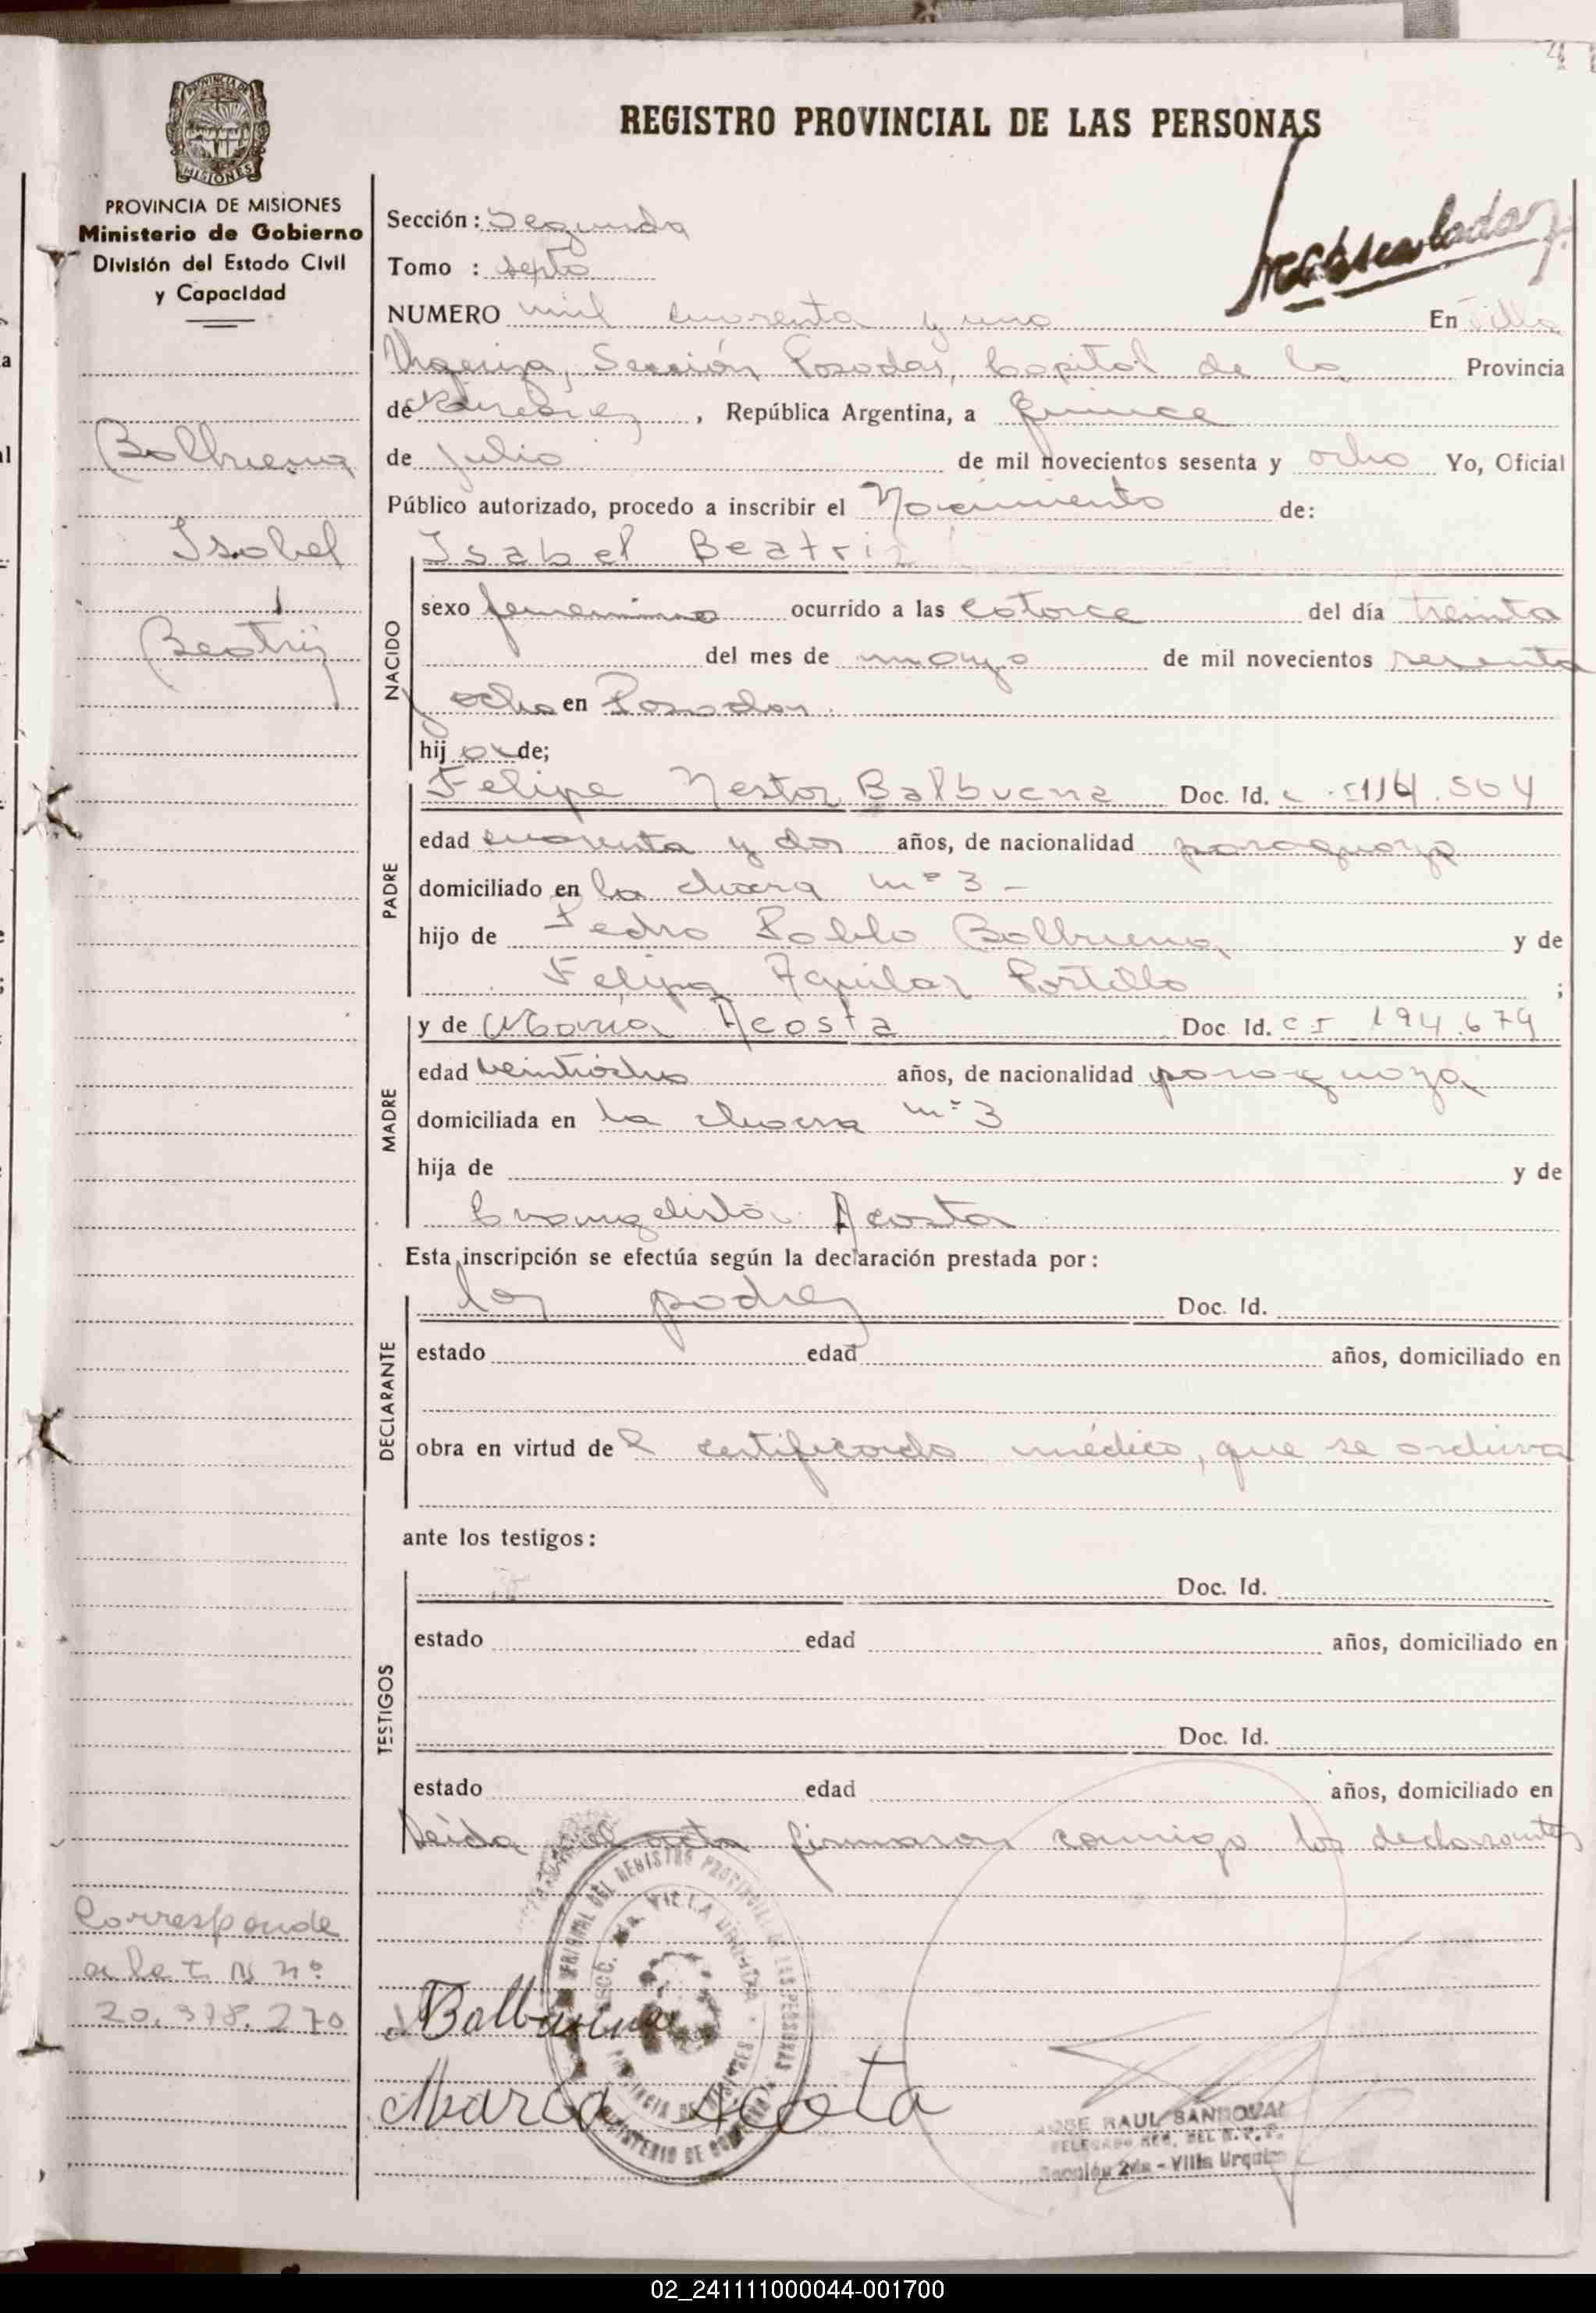 REGISTRO PROVINCIAL DE LAS PERSONAS
PROVINCIA DE MISIONES
Ministerio de Gobierno
División del Estado Civil
y Capacidad
Balbuena
Isabel
Beatriz
Corresponde
a la L. N nº
20.378.270
Sección: Segunda
Tomo : septo
NUMERO mil cuarenta y uno En Villa
Urquiza, Sección Posadas, Capital de la Provincia
de Misiones, República Argentina, a quince
de julio de mil novecientos sesenta y ocho Yo, Oficial
Público autorizado, procedo a inscribir el Nacimiento de:
NACIDO
Isabel Beatriz
sexo femenino ocurrido a las catorce del día treinta
del mes de mayo de mil novecientos sesenta
y ocho en Posadas.
hija de;
PADRE
Felipe Nestor Balbuena Doc. Id. 504
edad cuarenta y dos años, de nacionalidad paraguayo
domiciliado en la chacra nº 3 -
hijo de Pedro Pablo Balbuena y de
Felipa Aguilar Portillo ;
MADRE
y de Maria Acosta Doc. Id. C I 194.679
edad veintiocho años, de nacionalidad paraguaya
domiciliada en la chacra nº 3
hija de y de
Evangelista Acosta
Esta inscripción se efectúa según la declaración prestada por:
DECLARANTE
los padres Doc. Id.
estado edad años, domiciliado en
obra en virtud del certificado médico, que se archiva
ante los testigos:
TESTIGOS
Doc. Id.
estado edad años, domiciliado en
Doc. Id.
estado edad años, domiciliado en
Leída el acta firmaron conmigo los declarantes
Balbuena
Maria Acosta
JOSE RAUL SANDOVAL
Sección 2da - Villa Urquiza
02_241111000044-001700